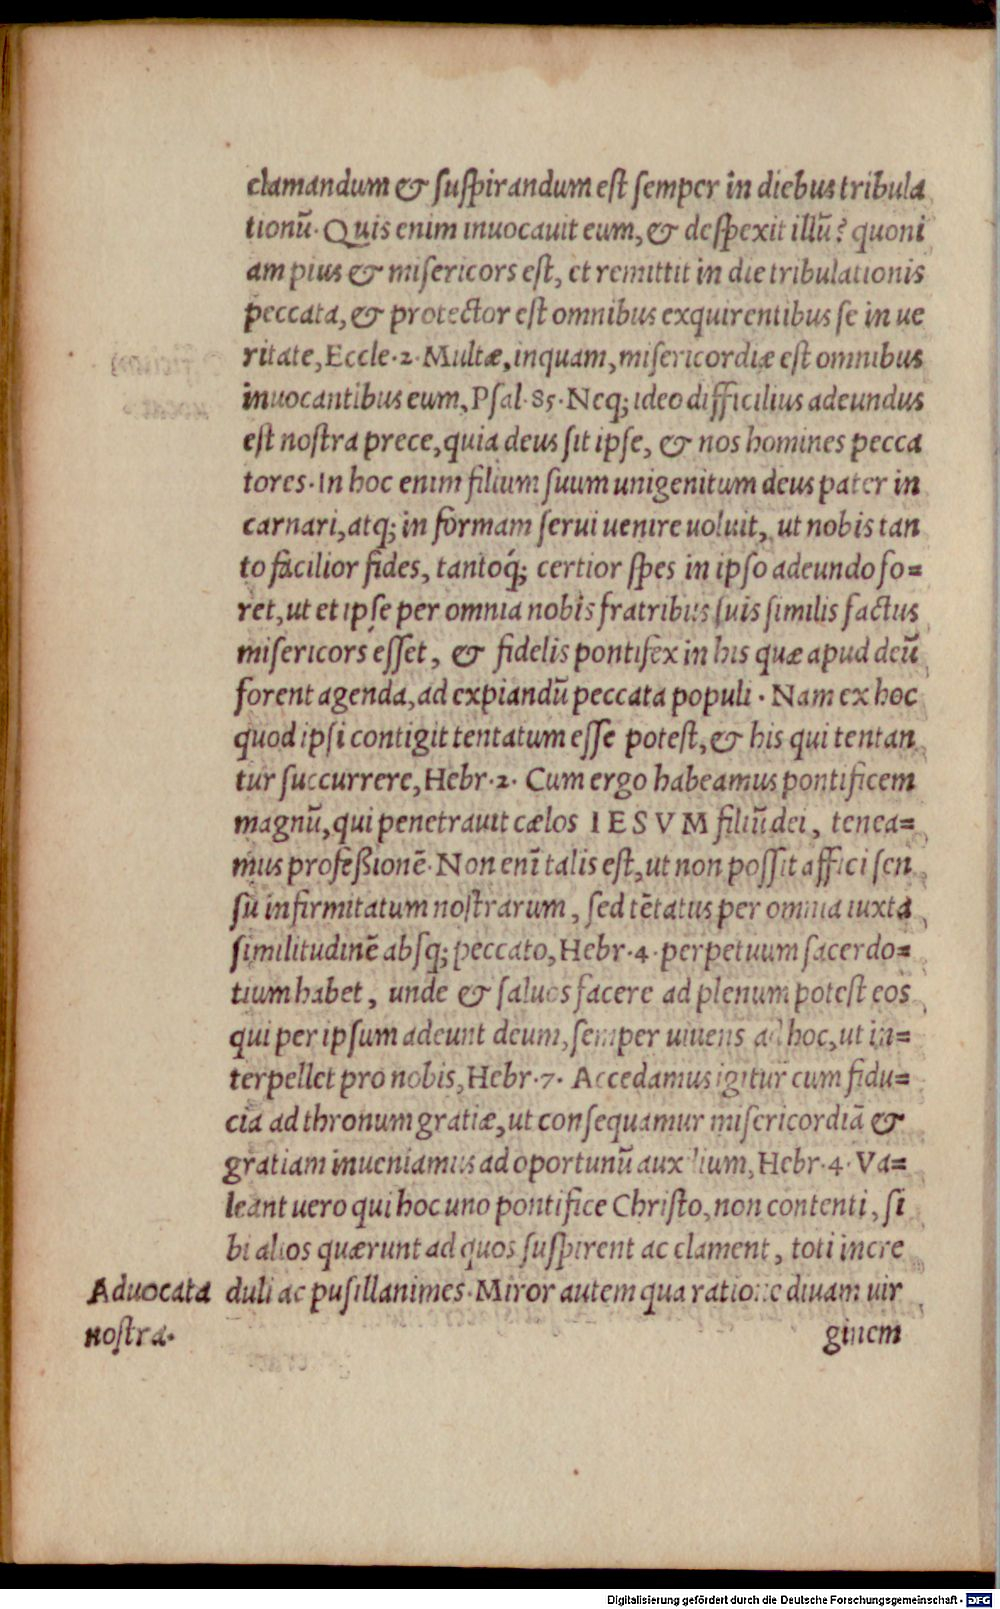 clamandum & suspirandum est semper in diebus tribula
tionū. Quis enim inuocauit eum, & despexit illū? quoni
am pius & misericors est, et remittit in die tribulationis
peccata, & protector est omnibus exquirentibus se in ue
ritate, Eccle. 2. Multæ, inquam, misericordiæ est omnibus
inuocantibus eum, Psal. 85. Neq; ideo difficilius adeundus
est nostra prece, quia deus sit ipse, & nos homines pecca
tores. In hoc enim filium suum unigenitum deus pater in
carnari, atq; in formam serui uenire uoluit, ut nobis tan
to facilior fides, tantoq́; certior spes in ipso adeundo fo=
ret, ut et ipse per omnia nobis fratribus suis similis factus
misericors esset, & fidelis pontifex in his quæ apud deū
forent agenda, ad expiandū peccata populi. Nam ex hoc
quod ipsi contigit tentatum esse potest, & his qui tentan
tur succurrere, Hebr. 2. Cum ergo habeamus pontificem
magnū, qui penetrauit cælos IESVM filiū dei, tenea=
mus profeßionē. Non enī talis est, ut non possit affici sen
su infirmitatum nostrarum, sed tētatus per omnia iuxta
similitudinē absq; peccato, Hebr. 4. perpetuum sacerdo=
tium habet, unde & saluos facere ad plenum potest eos
qui per ipsum adeunt deum, semper uiuens ad hoc, ut in=
terpellet pro nobis, Hebr. 7. Accedamus igitur cum fidu=
cia ad thronum gratiæ, ut consequamur misericordiā &
gratiam inueniamus ad oportunū auxilium, Hebr. 4. Va=
leant uero qui hoc uno pontifice Christo, non contenti, si
bi alios quærunt ad quos suspirent ac clament, toti incre
Aduocata duli ac pusillanimes. Miror autem qua ratione diuam uir
nostra. ginem
Digitalisierung gefördert durch die Deutsche Forschungsgemeinschaft - DFG